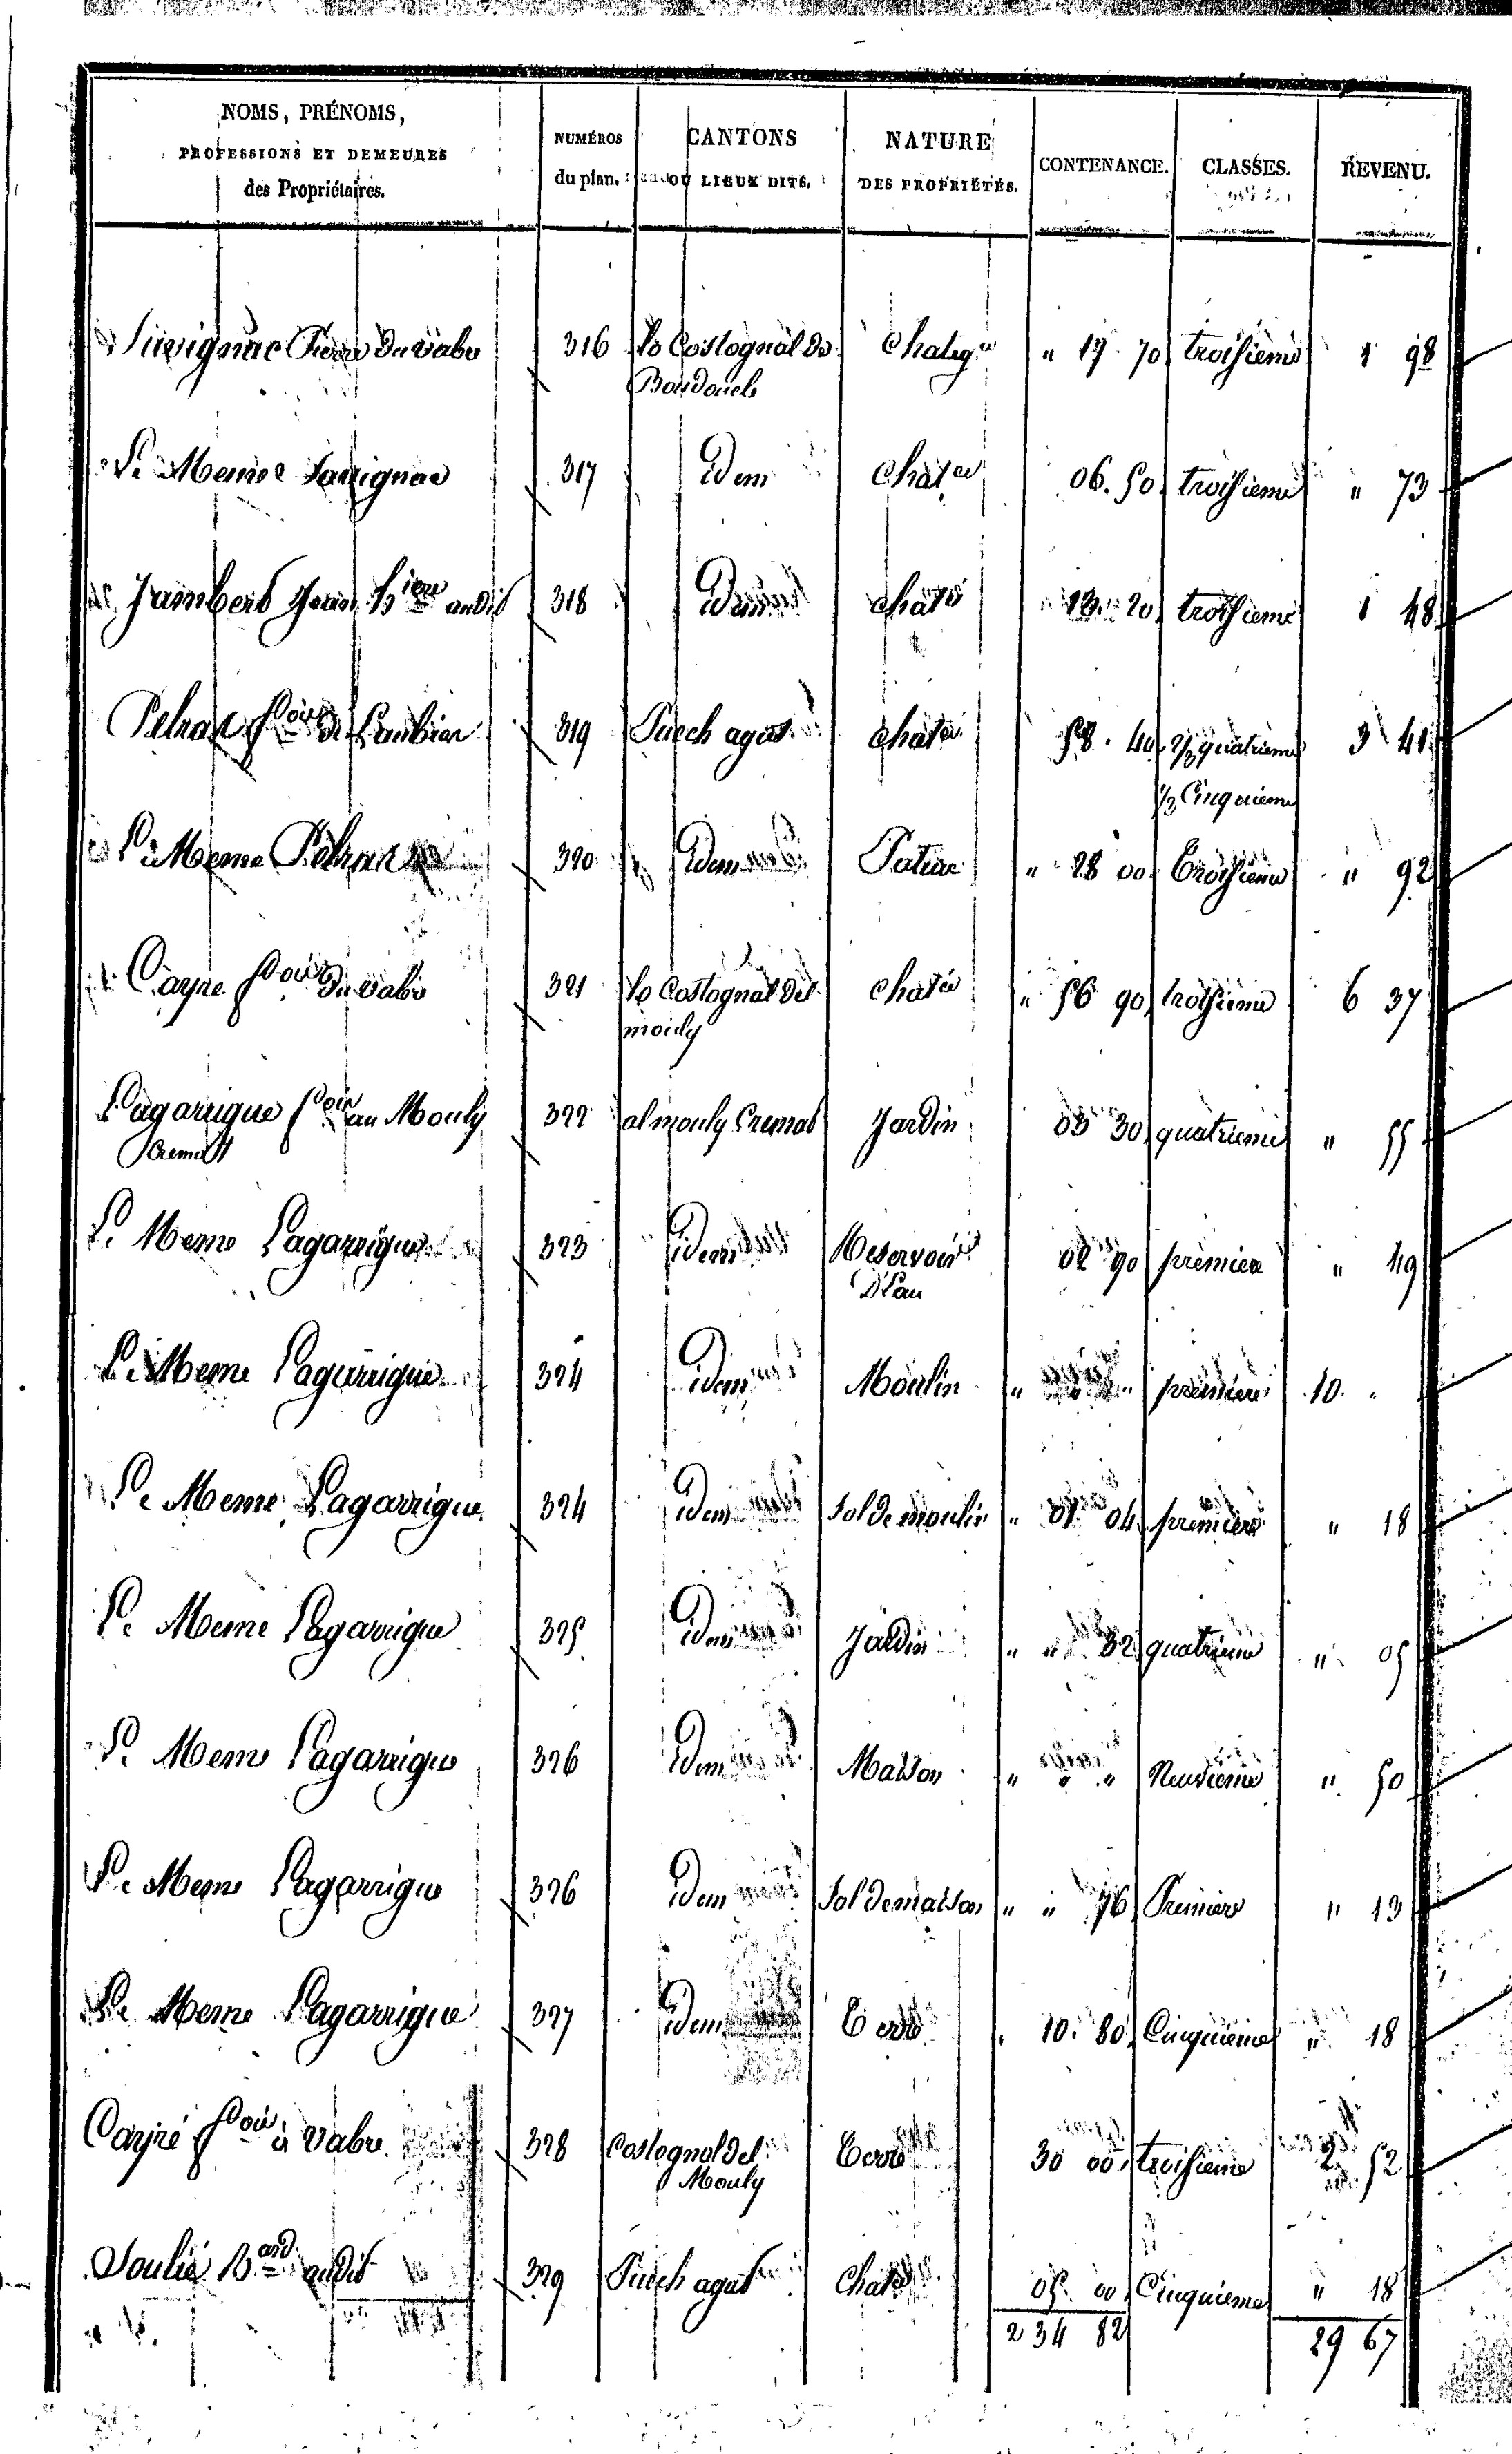 NOMS, PRÉNOMS, PROFESSIONS ET DEMEURES des Propriétaires. NUMÉROS du plan. CANTONS OU LIEUX DITS. NATURE DES PROPRIÉTÉS. CONTENANCE. CLASSES. REVENU.
Savignac Pierre Du vabre 316 lo Costognal De Chatig " 17 70 troisieme 1 98
Boudouch
Le Meme Savignac 317 idem Chat 06. 50 troisieme " 73
Jambert Jean audit 318 idem chat 13 20 troisieme 1 48
Pelras fcois de Laubier 319 Puech agut chat 58. 40 2/3 quatrieme 3 41
1/3 Cinquieme
Le Meme Pelras 320 idem Patur " 28 00 Troisieme " 92
Cayre fcois Du vabre 321 lo Costognal Del chat " 56 90 troisieme 6 37
mouly
Lagarrigue fcois au Mouly 322 al mouly Cremat Jardin 03 30 quatrieme " 55
Cremat
Le Meme Lagarrigue 323 idem Reservoir 02 90 premiere " 49
D'Eau
Le Meme Lagarrigue 324 idem Moulin " " " premiere 10 "
Le Meme Lagarrigue 324 idem Sol De moulin " 01 04 premiere " 18
Le Meme Lagarrigue 325 idem Jardin " " 32 quatrieme " 05
Le Meme Lagarrigue 326 idem Maison " " " Neuvieme " 50
Le Meme Lagarrigue 326 idem Sol De maison " " 76 Premiere " 13
Le Meme Lagarrigue 327 idem Terre 10. 80 Cinquieme " 18
Cayré fcois à vabre 328 Costognal Del Terre 30 00 troisieme 2 52
Mouly
Soulié Bard audit 329 Puech agut Chat 05 00 Cinquieme " 18
2 34 82 29 67